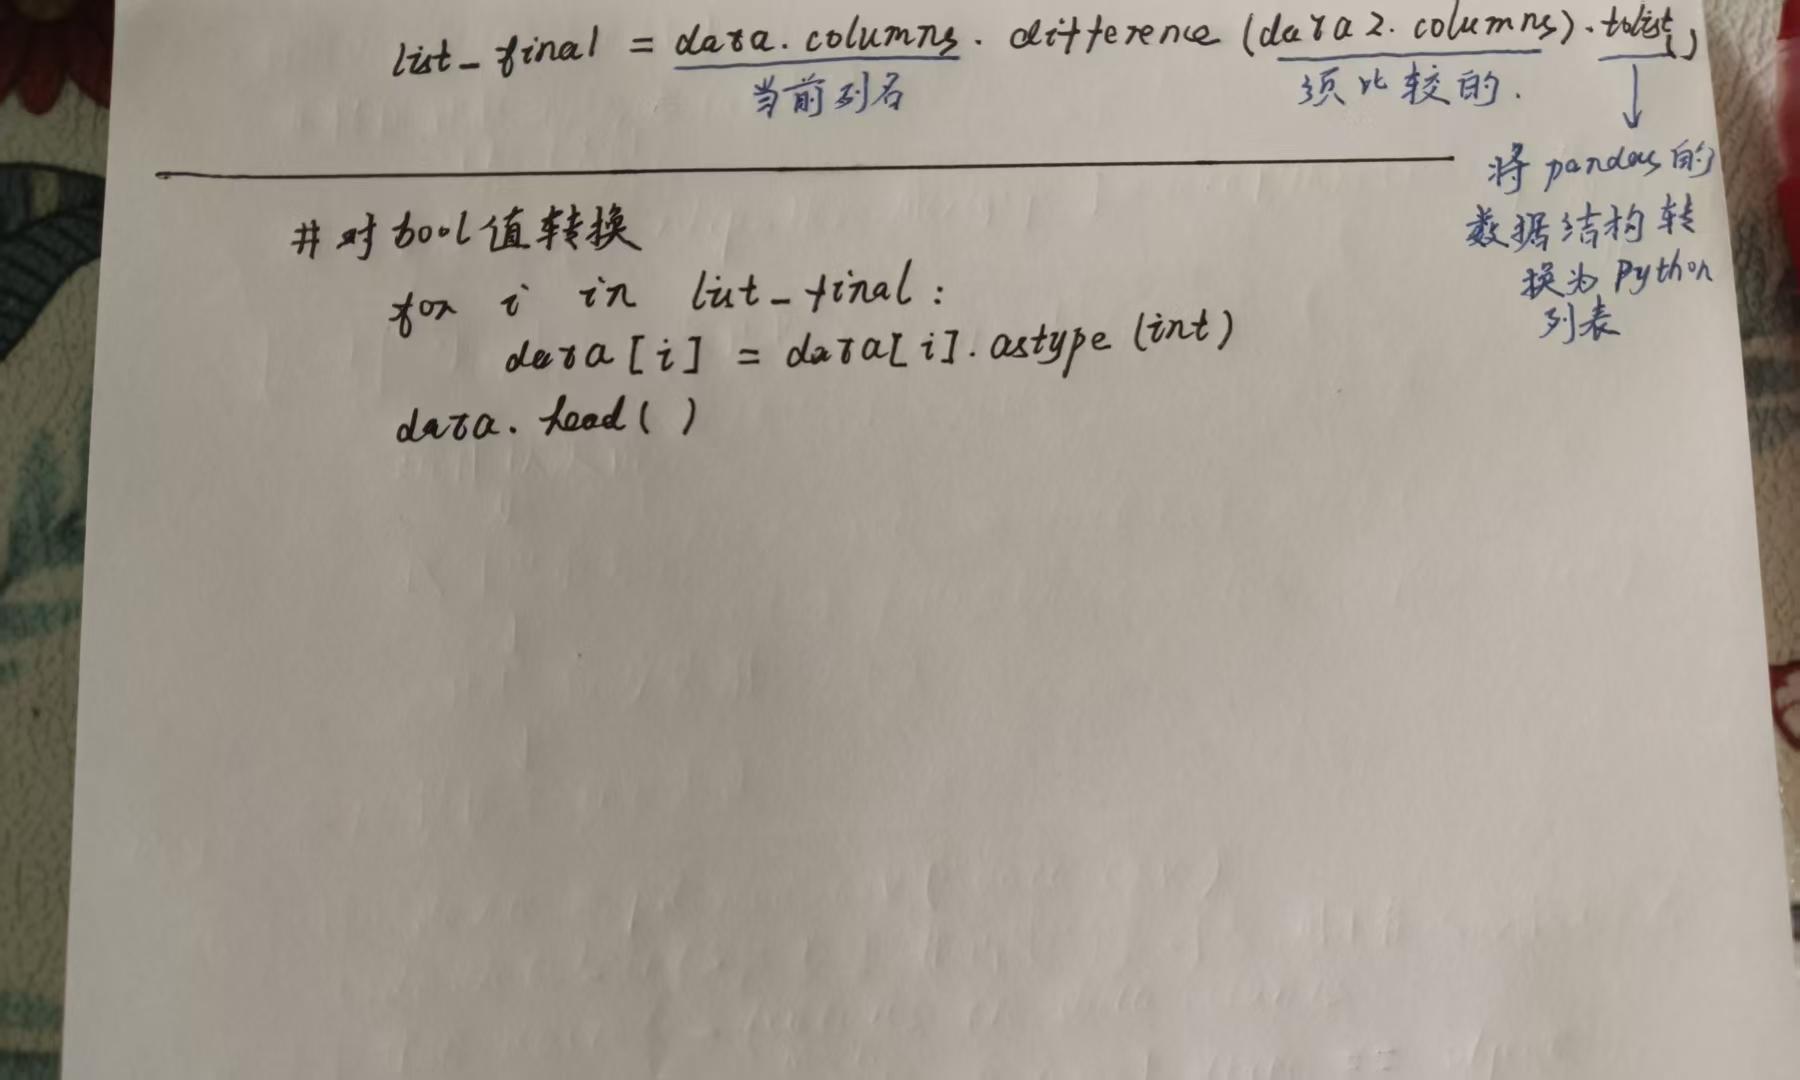 list_final = data.columns.difference(data2.columns).tolist()
当前列名
须比较的.
将pandas的
数据结构转
换为Python
列表
#对bool值转换
for i in list_final:
data[i] = data[i].astype(int)
data.head()